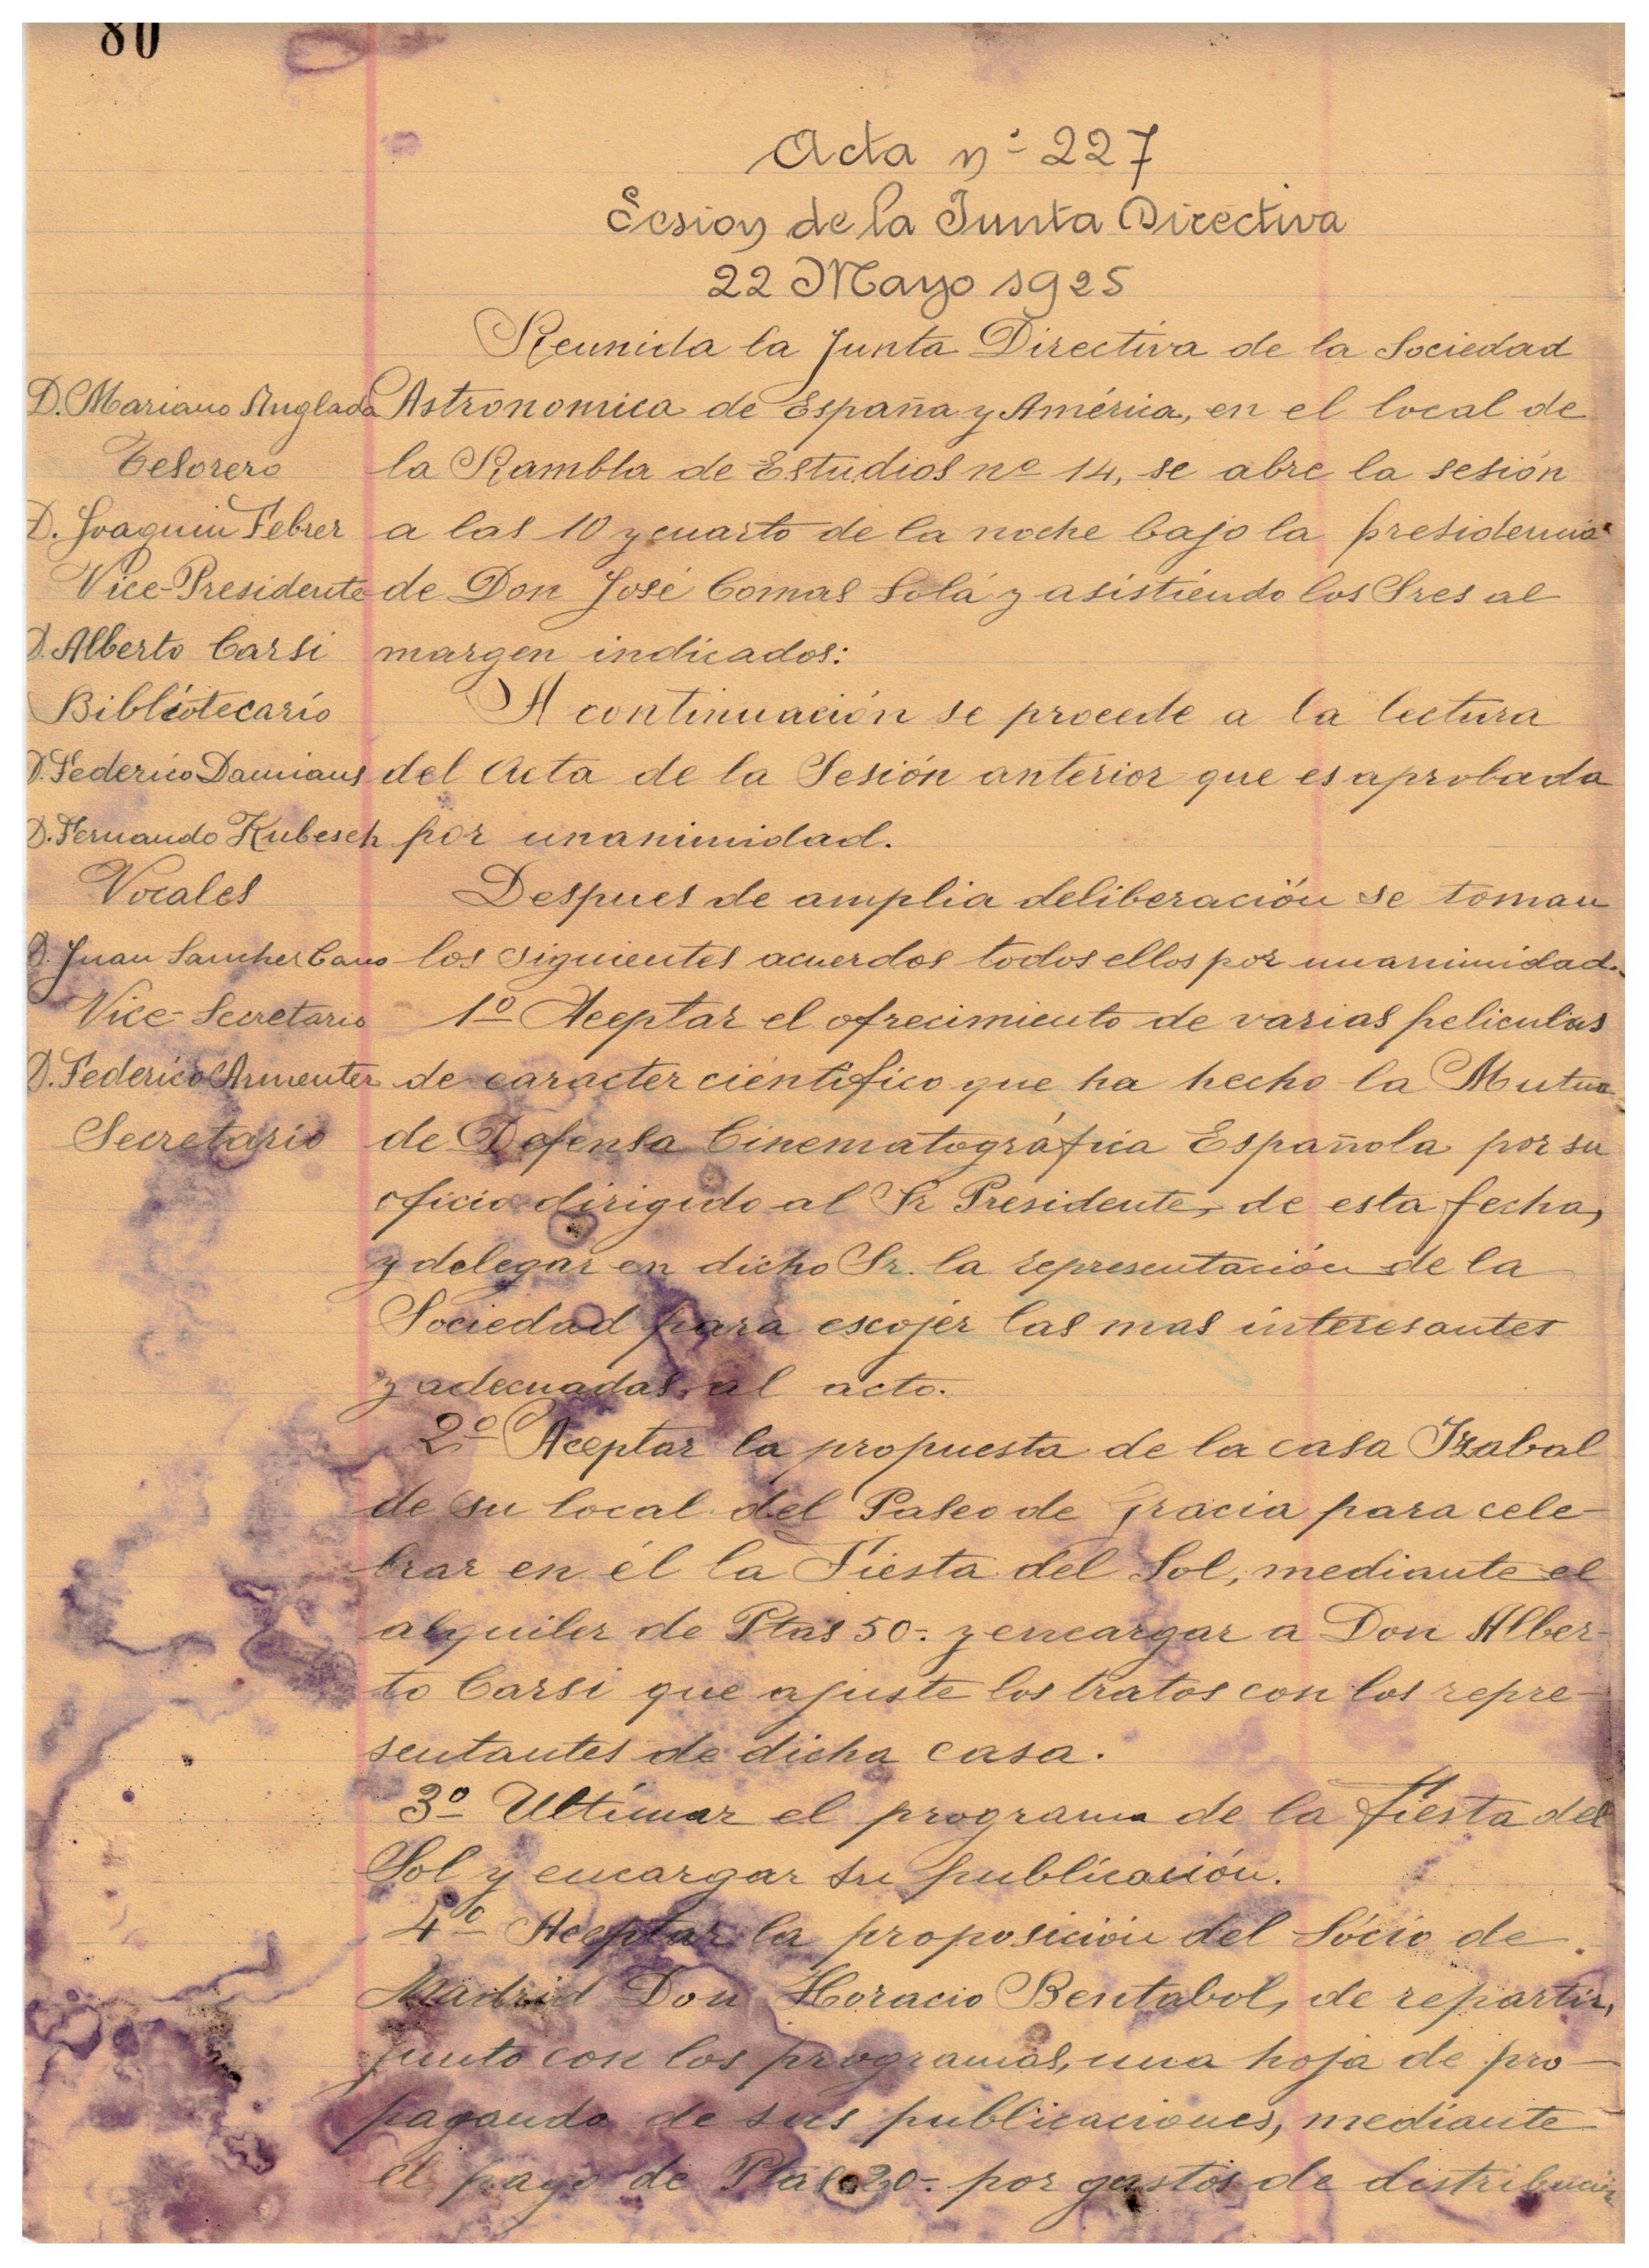 80
Acta nº 227
Sesion de la Junta Directiva
22 Mayo 1925
Reunida la Junta Directiva de la Sociedad
Astronomica de España y América, en el local de
la Rambla de Estudios nº 14, se abre la sesión
a las 10 y cuarto de la noche bajo la presidencia
de Don José Comas Solá y asistiendo los Sres al
margen indicados:
D. Mariano Anglada
Tesorero
D. Joaquin Febrer
Vice-Presidente
D. Alberto Carsi
Bibliotecario
D. Federico Damians
D. Fernando Kubesch
Vocales
D. Juan Sanchez Cano
Vice-Secretario
D. Federico Armenter
Secretario
A continuación se procede a la lectura
del Acta de la Sesión anterior que es aprobada
por unanimidad.
Despues de amplia deliberación se toman
los siguientes acuerdos todos ellos por unanimidad.
1º Aceptar el ofrecimiento de varias peliculas
de caracter cientifico que ha hecho la Mutua
de Defensa Cinematográfica Española por su
oficio dirigido al Sr Presidente, de esta fecha,
y delegar en dicho Sr. la representación de la
Sociedad para escojer las mas interesantes
y adecuadas al acto.
2º Aceptar la propuesta de la casa Izabal
de su local del Paseo de Gracia para cele-
brar en él la Fiesta del Sol, mediante el
alquiler de Ptas 50.- y encargar a Don Alber-
to Carsi que ajuste los tratos con los repre-
sentantes de dicha casa.
3º Ultimar el programa de la fiesta del
Sol y encargar su publicación.
4º Aceptar la proposición del Sócio de
Madrid Don Horacio Bentabol, de repartir,
junto con los programas, una hoja de pro-
paganda de sus publicaciones, mediante
el pago de Ptas 20.- por gastos de distribución